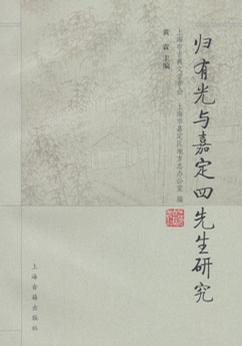 归有光与嘉定四先生研究
上海市古典文学学会 上海市嘉定区地方志办公室 编
黄霖 主编
上海古籍出版社